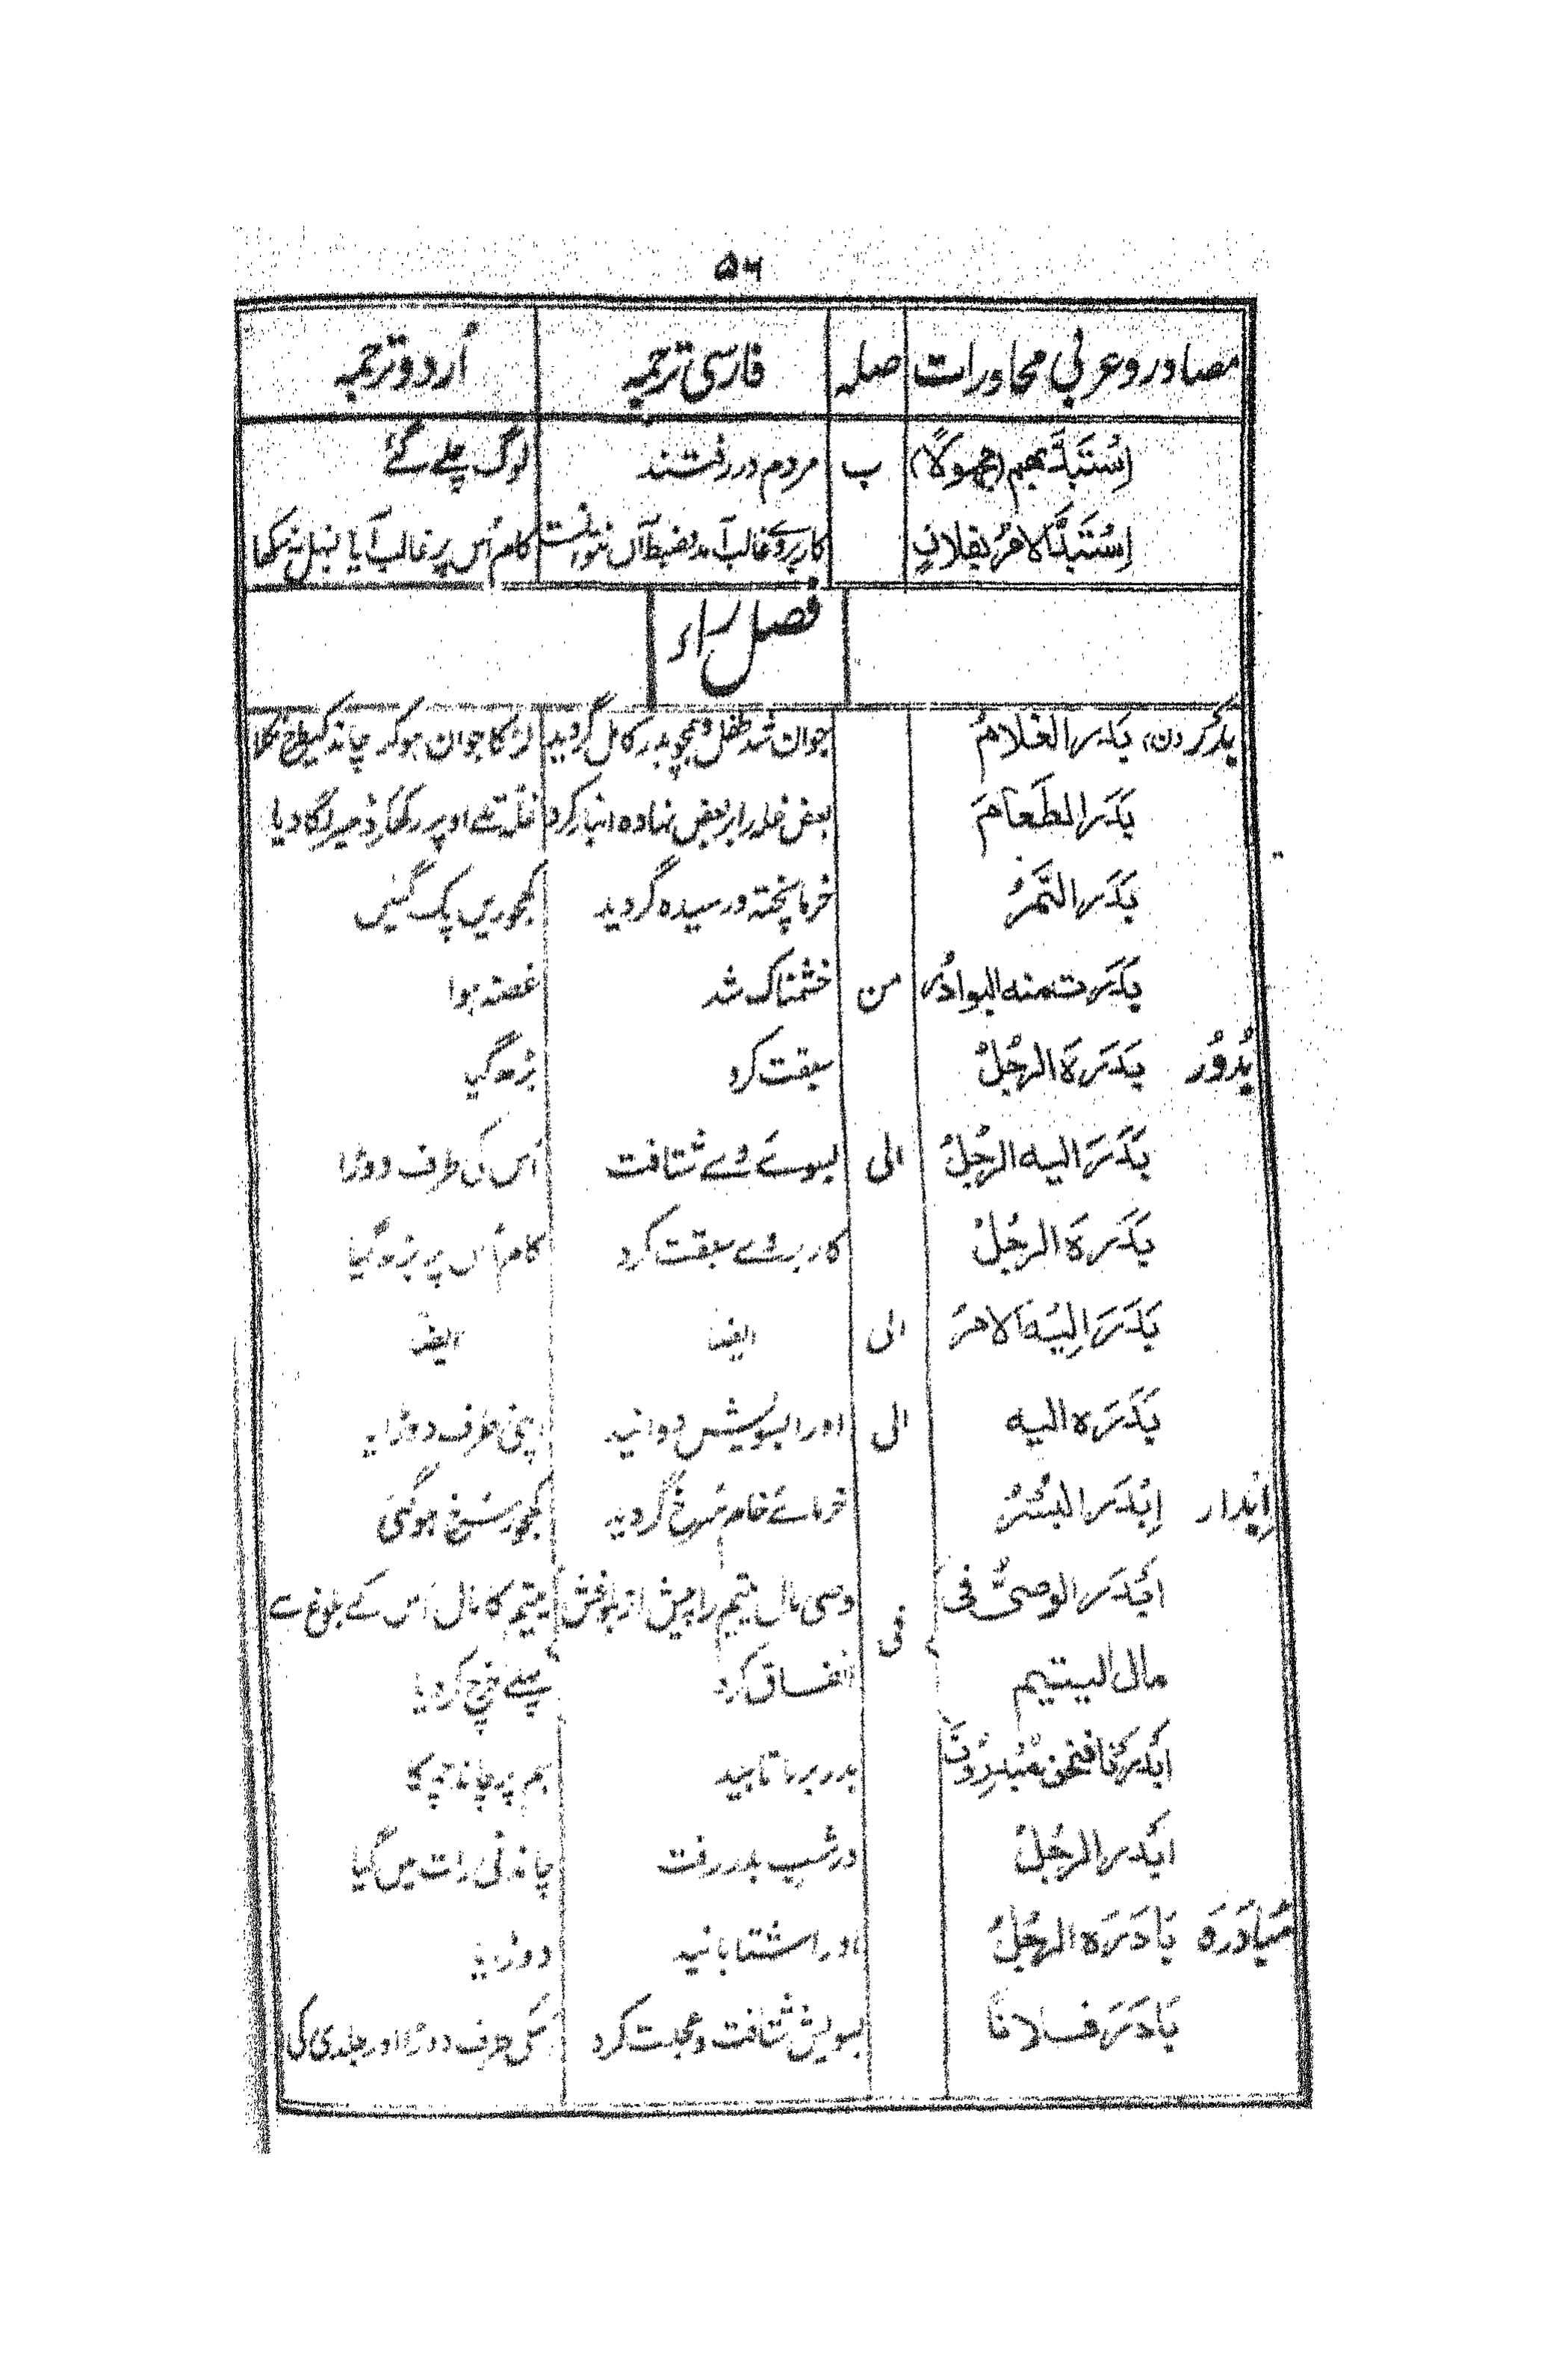 ۵۶
مصادر و عربی محاورات صلہ فارسی ترجمہ اُردو ترجمہ
اِسْتَبَدَّ بھم (مجھولًا) ب مردم در رفتند لوگ چلے گئے
اِسْتَبَدَّ الامرُ بفلانٍ کار بروے غالب آمد و ضبط آں نتوانست کام اُس پر غالب آیا
فصل راء
بَدْر (ن) بَدَرَ الغلامُ جوان شد طفل و ہمچو بدر کامل گردید لڑکا جوان ہوکر چاند کیطرح نکلا
بَدَرَ الطَعامَ بعض غلہ را بر بعض نہادہ انبار کرد غلّہ تلے اوپر رکھکر ڈھیر لگا دیا
بَدَرَ التَّمرُ خرما پختہ و رسیدہ گردید کھجوریں پک گئیں
بَدَرَت منہ البوادُر من خشمناک شد غصہ ہوا
بُدُوْر بَدَرَہَ الرجُلُ سبقت کرد بڑھ گیا
بَدَرَ الیہ الرجُلُ الی بسوئے وے شتافت اُس کی طرف دوڑا
بَدَرَہَ الرجُلُ کار بر وے سبقت کرد کام اُس پر بڑھ گیا
بَدَرَ اِلیْہ الامرُ الی ایضا ایضا
بَدَرَہ الیہ الی او را بسویش دوانید اپنی طرف دوڑایا
اِبْدار اِبْدَرَ البُسْرُ خرمائے خام سُرخ گردید کھجور سُرخ ہوگئی
ابْدَرَ الوصیُّ فی فی وصی مال یتیم را پیش از بلوغش یتیم کا مال اُس کے بلوغ سے
مال الیتیم انفاق کرد پہلے خرچ کر دیا
ابْدَرْنا فنحن مُبْدِرُوْنَ بدر بر ما تابید ہم پر چاند چمکا
ابْدَرَ الرجُلُ در شب بدر رفت چاندنی رات میں گیا
مُبادَرَہ بَادَرَہ الرجُلُ او را شتابانید دوڑایا
بَادَرَ فلانًا بسویش شتافت و عجلت کرد طرف دوڑا اور جلدی کی